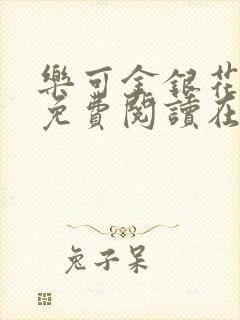 樂可金銀花
免費閱讀在
兔子呆